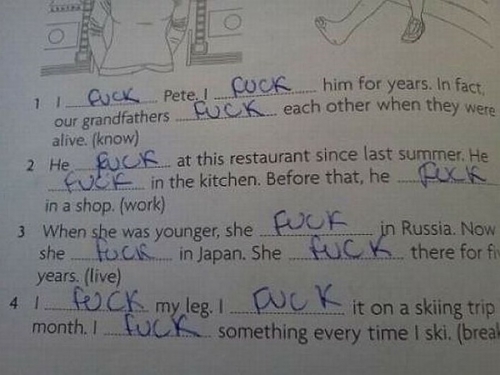 1 I fuck Pete. I fuck him for years. In fact,
our grandfathers fuck each other when they were
alive. (know)
2 He fuck at this restaurant since last summer. He
fuck in the kitchen. Before that, he fuck
in a shop. (work)
3 When she was younger, she fuck in Russia. Now
she fuck in Japan. She fuck there for fi
years. (live)
4 I fuck my leg. I fuck it on a skiing trip
month. I fuck something every time I ski. (break